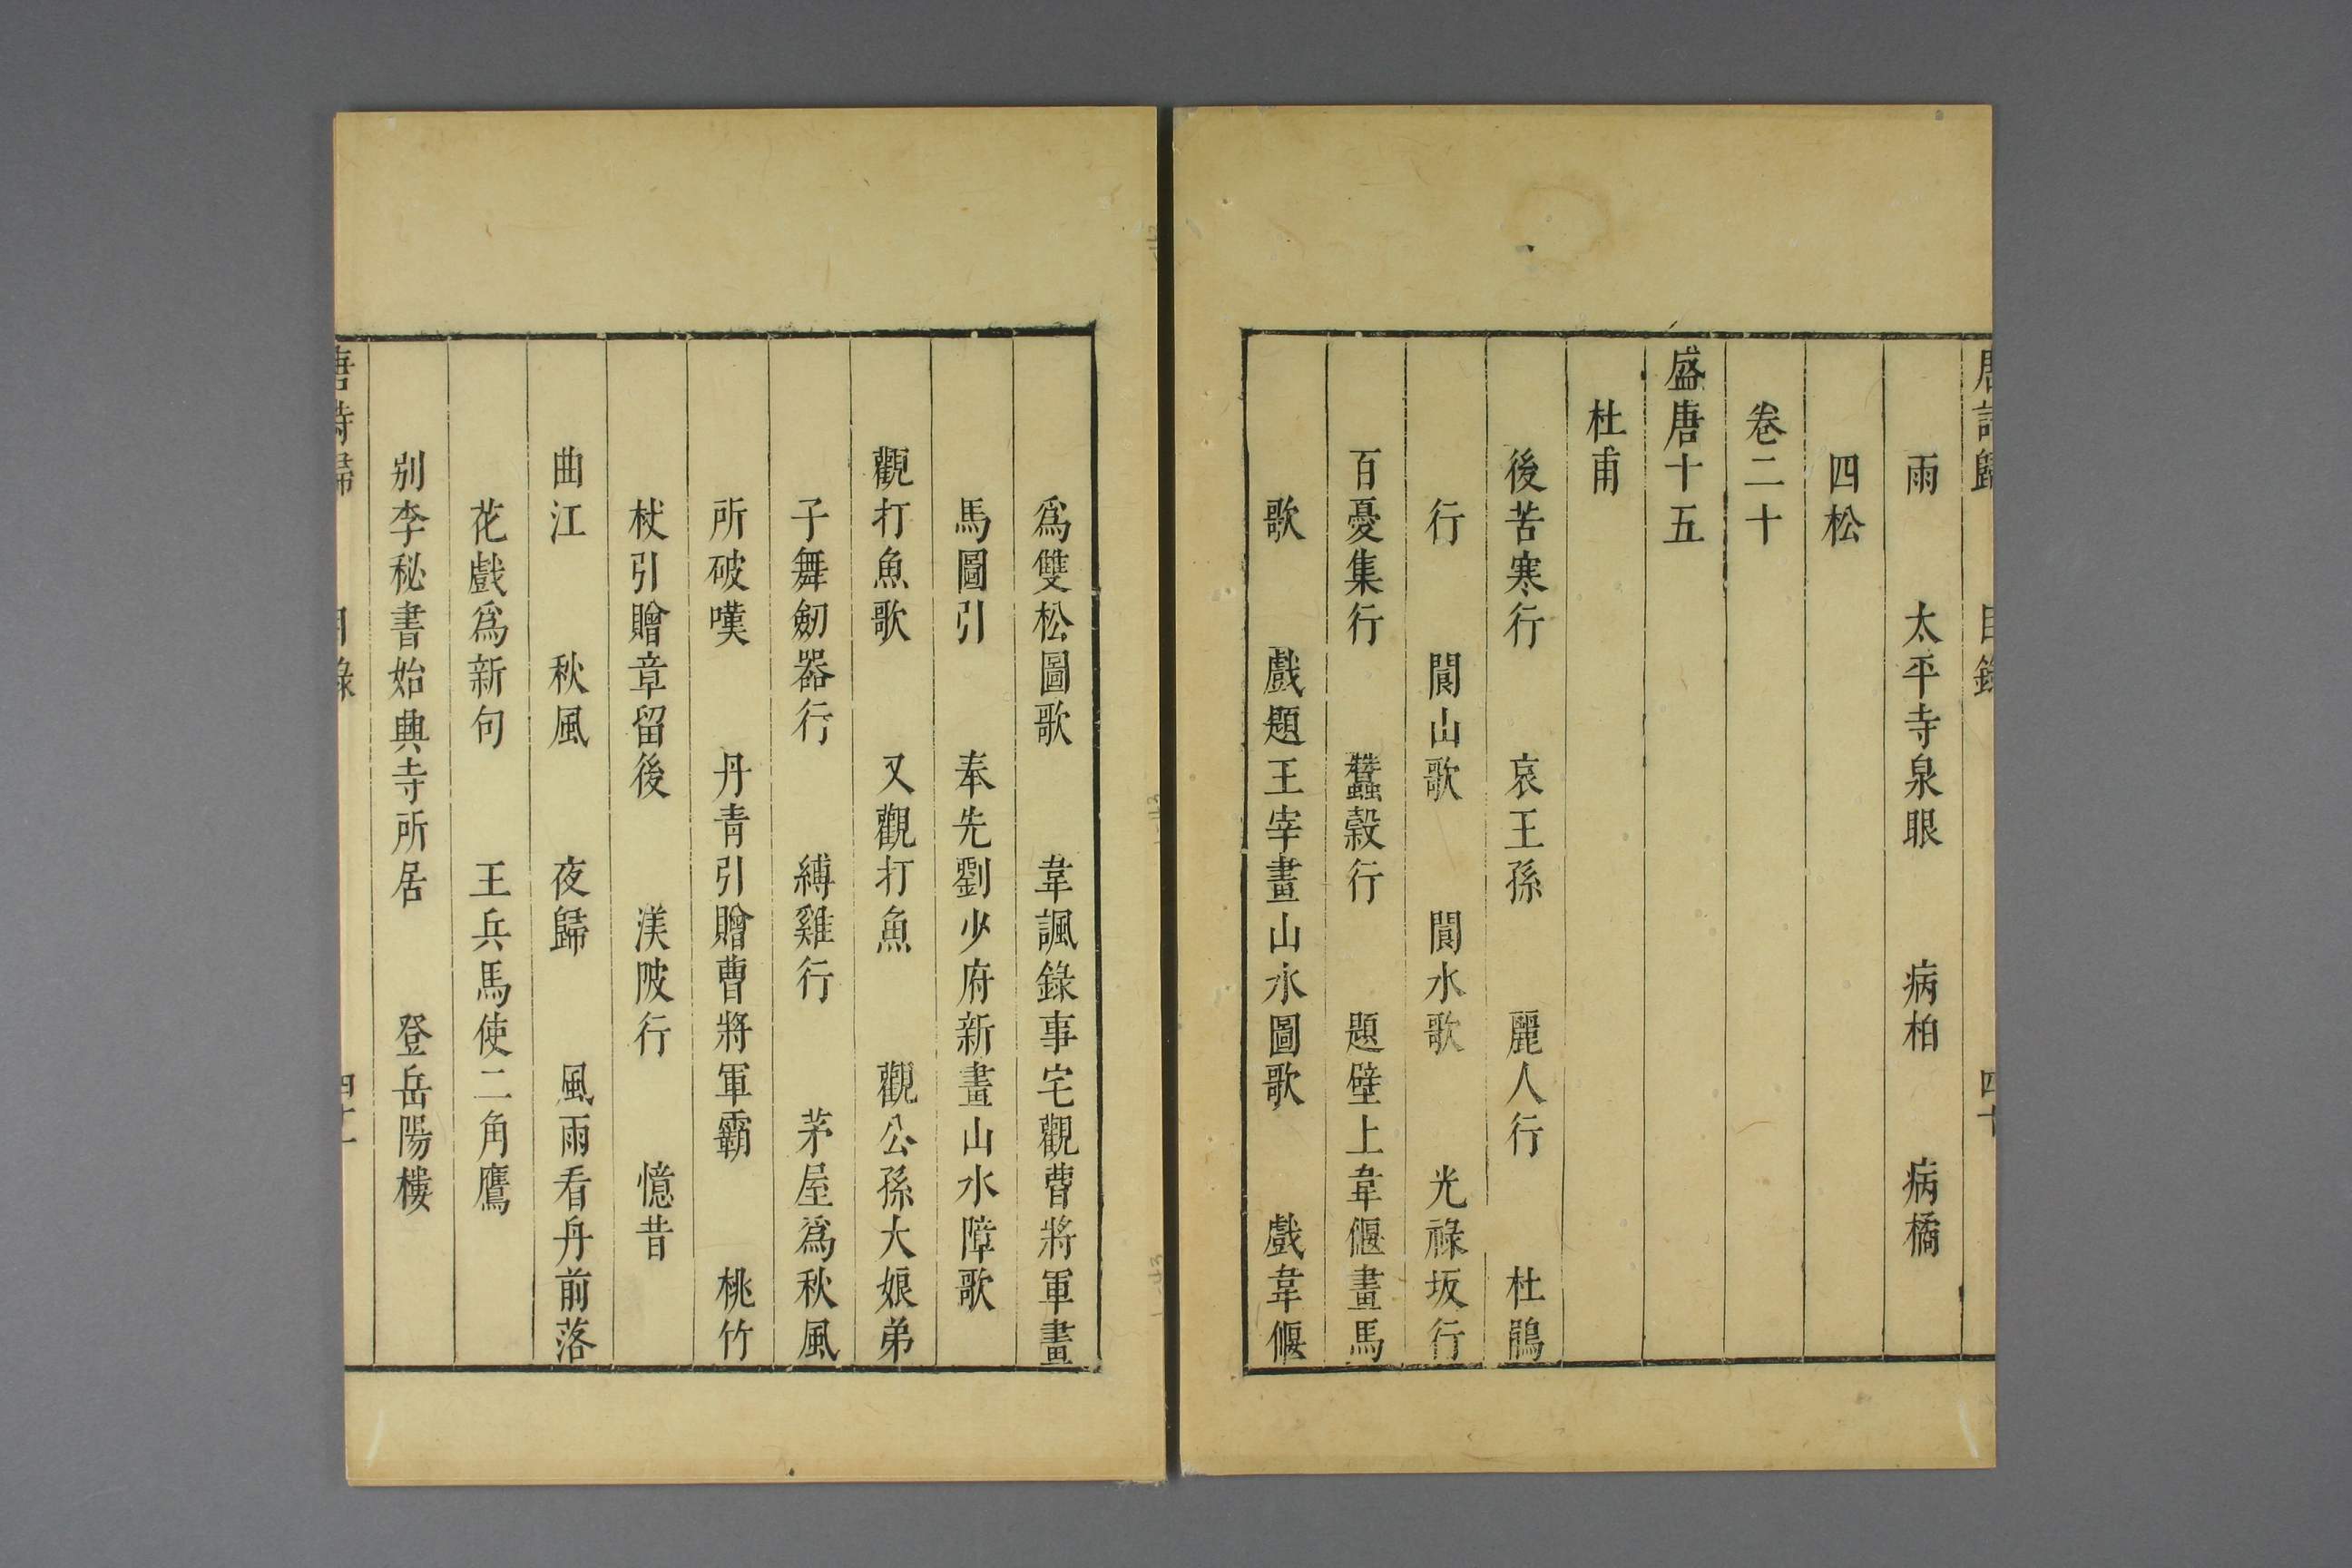 唐詩歸 目錄 四十
雨 太平寺泉眼 病柏 病橘
四松
卷二十
盛唐十五
杜甫
後苦寒行 哀王孫 麗人行 杜鵑
行 閬山歌 閬水歌 光祿坂行
百憂集行 蠶穀行 題壁上韋偃畫馬
歌 戲題王宰畫山水圖歌 戲韋偃
為雙松圖歌 韋諷錄事宅觀曹將軍畫
馬圖引 奉先劉少府新畫山水障歌
觀打魚歌 又觀打魚 觀公孫大娘弟
子舞劒器行 縛雞行 茅屋為秋風
所破嘆 丹青引贈曹將軍霸 桃竹
杖引贈章留後 渼陂行 憶昔
曲江 秋風 夜歸 風雨看舟前落
花戲為新句 王兵馬使二角鷹
別李秘書始興寺所居 登岳陽樓
唐詩歸 目錄